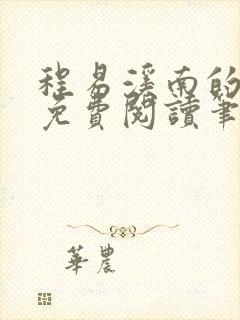 程易溪南的
免費閱讀筆
華農